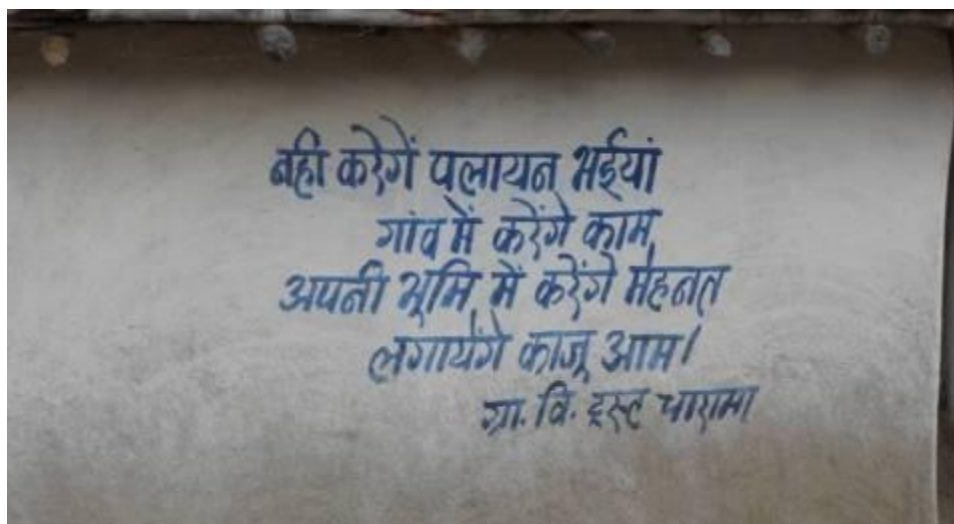 नही करेगें पलायन भईयां
गांव में करेंगे काम,
अपनी भूमि में करेंगे मेहनत
लगायेंगे काजू आम।
ग्रा. वि. ट्रस्ट चारामा